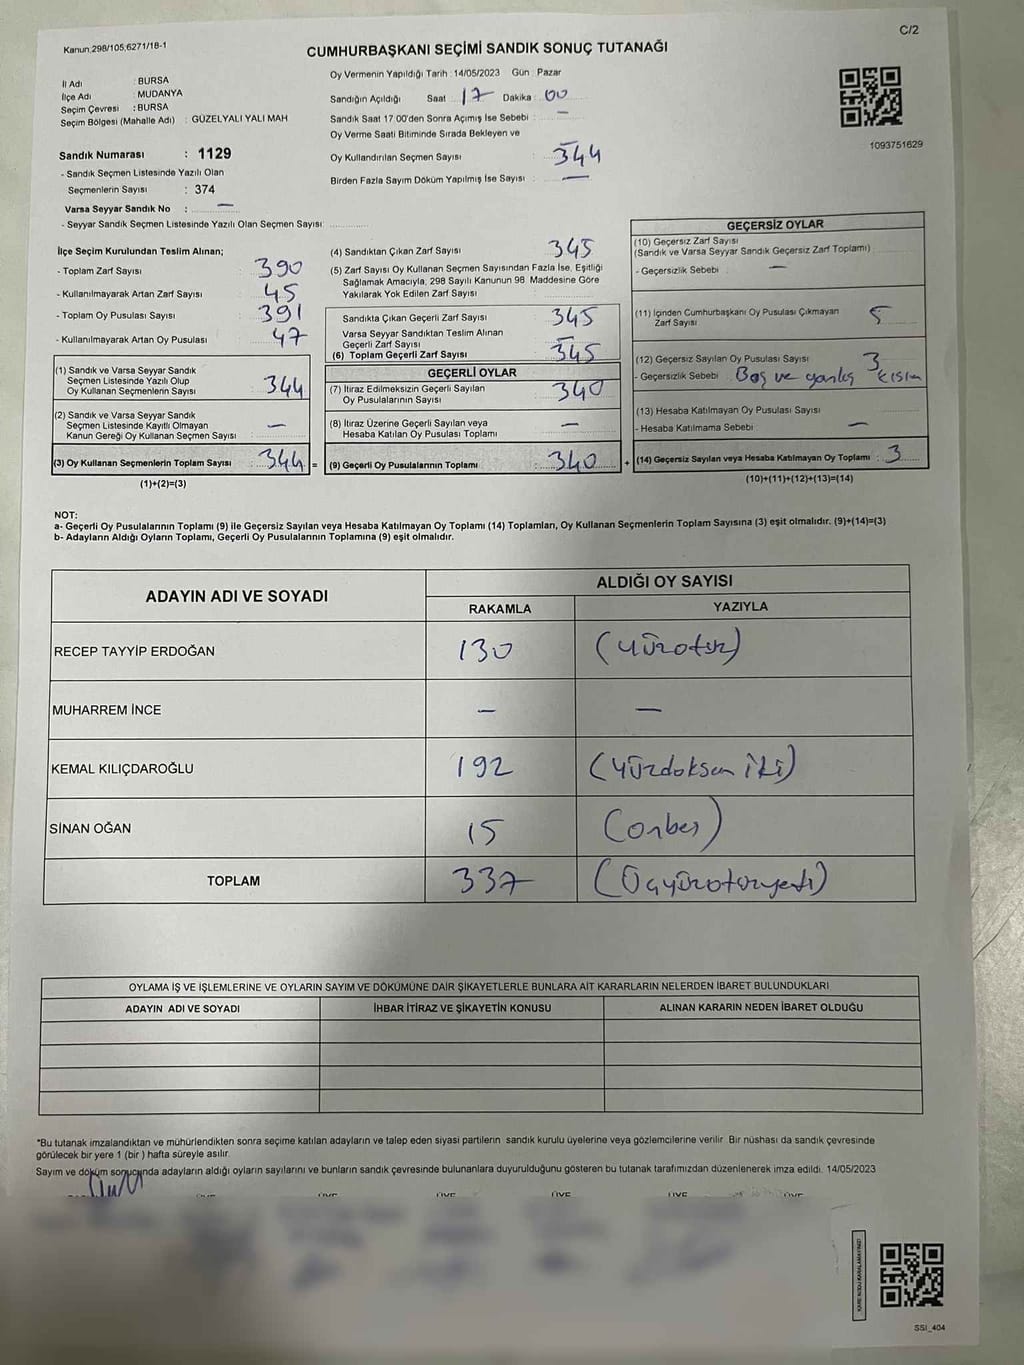 C/2
Kanun,298/105,6271/18-1
CUMHURBAŞKANI SEÇİMİ SANDIK SONUÇ TUTANAĞI
İl Adı : BURSA
İlçe Adı : MUDANYA
Seçim Çevresi : BURSA
Seçim Bölgesi (Mahalle Adı) : GÜZELYALI YALI MAH
Sandık Numarası : 1129
- Sandık Seçmen Listesinde Yazılı Olan
Seçmenlerin Sayısı : 374
Varsa Seyyar Sandık No : —
- Seyyar Sandık Seçmen Listesinde Yazılı Olan Seçmen Sayısı:
Oy Vermenin Yapıldığı Tarih : 14/05/2023 Gün : Pazar
Sandığın Açıldığı Saat 17 Dakika : 00
Sandık Saat 17:00'den Sonra Açımış İse Sebebi : —
Oy Verme Saati Bitiminde Sırada Bekleyen ve
Oy Kullandırılan Seçmen Sayısı : 344
Birden Fazla Sayım Döküm Yapılmış İse Sayısı : —
1093751629
İlçe Seçim Kurulundan Teslim Alınan;
- Toplam Zarf Sayısı : 390
- Kullanılmayarak Artan Zarf Sayısı : 45
- Toplam Oy Pusulası Sayısı : 391
- Kullanılmayarak Artan Oy Pusulası : 47
(1) Sandık ve Varsa Seyyar Sandık
Seçmen Listesinde Yazılı Olup
Oy Kullanan Seçmenlerin Sayısı : 344
(2) Sandık ve Varsa Seyyar Sandık
Seçmen Listesinde Kayıtlı Olmayan
Kanun Gereği Oy Kullanan Seçmen Sayısı : —
(3) Oy Kullanan Seçmenlerin Toplam Sayısı : 344 =
(1)+(2)=(3)
(4) Sandıktan Çıkan Zarf Sayısı : 345
(5) Zarf Sayısı Oy Kullanan Seçmen Sayısından Fazla İse, Eşitliği
Sağlamak Amacıyla, 298 Sayılı Kanunun 98. Maddesine Göre
Yakılarak Yok Edilen Zarf Sayısı : —
Sandıkta Çıkan Geçerli Zarf Sayısı : 345
Varsa Seyyar Sandıktan Teslim Alınan
Geçerli Zarf Sayısı : —
(6) Toplam Geçerli Zarf Sayısı : 345
GEÇERLİ OYLAR
(7) İtiraz Edilmeksizin Geçerli Sayılan
Oy Pusulalarının Sayısı : 340
(8) İtiraz Üzerine Geçerli Sayılan veya
Hesaba Katılan Oy Pusulası Toplamı : —
(9) Geçerli Oy Pusulalarının Toplamı : 340 +
GEÇERSİZ OYLAR
(10) Geçersiz Zarf Sayısı
(Sandık ve Varsa Seyyar Sandık Geçersiz Zarf Toplamı) :
- Geçersizlik Sebebi : —
(11) İçinden Cumhurbaşkanı Oy Pusulası Çıkmayan
Zarf Sayısı : 5
(12) Geçersiz Sayılan Oy Pusulası Sayısı : 3
- Geçersizlik Sebebi : Boş ve yanlış kısım
(13) Hesaba Katılmayan Oy Pusulası Sayısı :
- Hesaba Katılmama Sebebi : —
(14) Geçersiz Sayılan veya Hesaba Katılmayan Oy Toplamı : 3
(10)+(11)+(12)+(13)=(14)
NOT:
a- Geçerli Oy Pusulalarının Toplamı (9) ile Geçersiz Sayılan veya Hesaba Katılmayan Oy Toplamı (14) Toplamları, Oy Kullanan Seçmenlerin Toplam Sayısına (3) eşit olmalıdır. (9)+(14)=(3)
b- Adayların Aldığı Oyların Toplamı, Geçerli Oy Pusulalarının Toplamına (9) eşit olmalıdır.
ADAYIN ADI VE SOYADI
ALDIĞI OY SAYISI
RAKAMLA YAZIYLA
RECEP TAYYİP ERDOĞAN 130 (Yüzotuz)
MUHARREM İNCE — —
KEMAL KILIÇDAROĞLU 192 (Yüzdoksan iki)
SİNAN OĞAN 15 (onbeş)
TOPLAM 337 (Üçyüzotuzyedi)
OYLAMA İŞ VE İŞLEMLERİNE VE OYLARIN SAYIM VE DÖKÜMÜNE DAİR ŞİKAYETLERLE BUNLARA AİT KARARLARIN NELERDEN İBARET BULUNDUKLARI
ADAYIN ADI VE SOYADI İHBAR İTİRAZ VE ŞİKAYETİN KONUSU ALINAN KARARIN NEDEN İBARET OLDUĞU
*Bu tutanak imzalandıktan ve mühürlendikten sonra seçime katılan adayların ve talep eden siyasi partilerin sandık kurulu üyelerine veya gözlemcilerine verilir. Bir nüshası da sandık çevresinde
görülecek bir yere 1 (bir ) hafta süreyle asılır.
Sayım ve döküm sonucunda adayların aldığı oyların sayılarını ve bunların sandık çevresinde bulunanlara duyurulduğunu gösteren bu tutanak tarafımızdan düzenlenerek imza edildi. 14/05/2023
ÜYE ÜYE ÜYE ÜYE ÜYE
KARE KODU KARALAMAYINIZ!
SSI_404